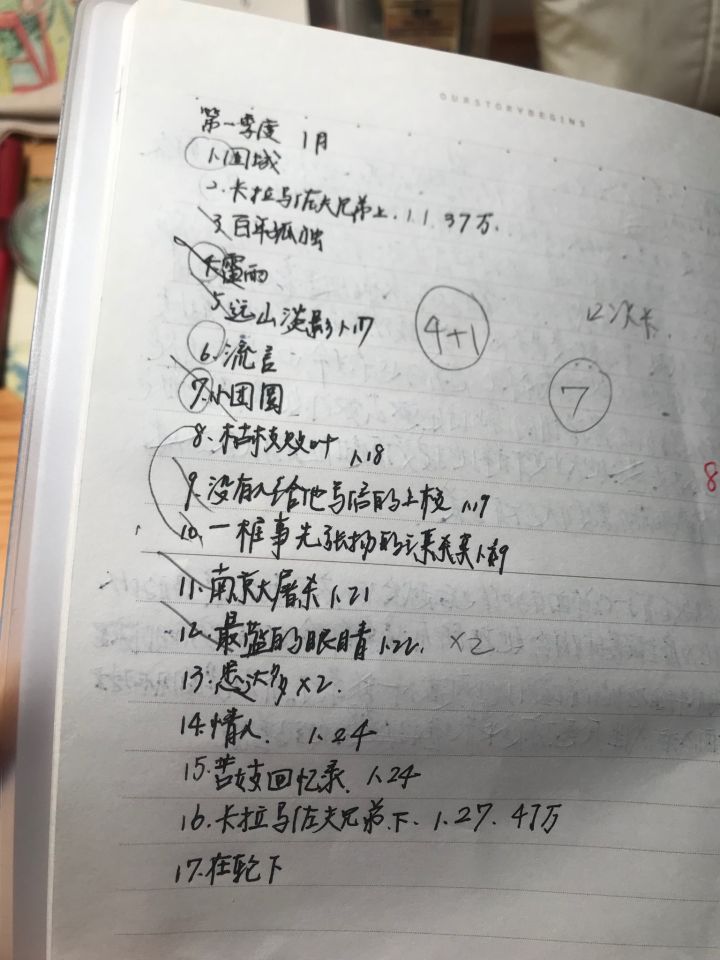 OURSTORYBEGINS
第一季度 1月
1.围城
2.卡拉马佐夫兄弟上.1.1 37万.
3.百年孤独
4.雷雨
5.远山淡影1.17
6.流言
7.小团圆
4+1
12次卡
7
8.枯枝败叶 1.18
9.没有人给他写信的上校 1.19
10.一桩事先张扬的谋杀案1.19
8
11.南京大屠杀 1.21
12.最蓝的眼睛 1.22. ×2
13.悉达多 ×2.
14.情人. 1.24
15.苦妓回忆录. 1.24
16.卡拉马佐夫兄弟.下. 1.27. 47万
17.在轮下